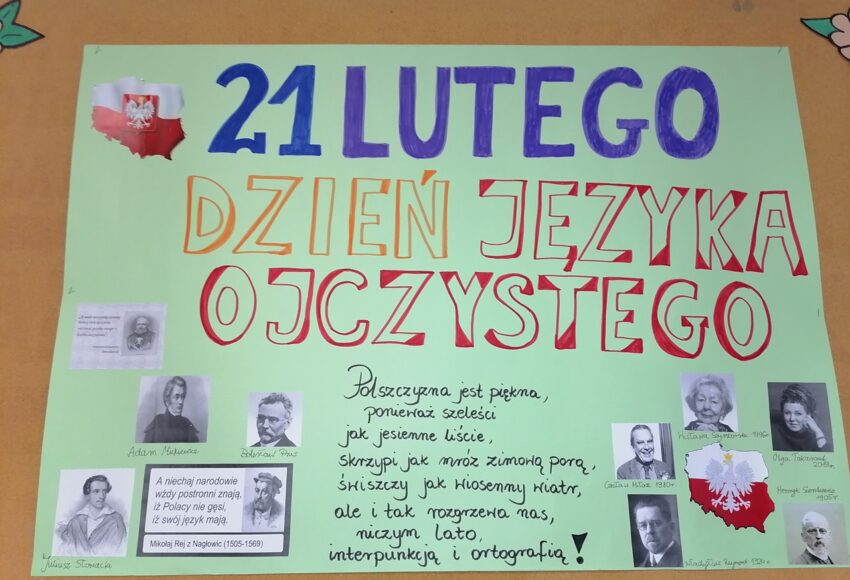 21 LUTEGO
DZIEŃ JĘZYKA
OJCZYSTEGO
Polszczyzna jest piękna,
ponieważ szeleści
jak jesienne liście,
skrzypi jak mróz zimową porą,
świszczy jak wiosenny wiatr,
ale i tak rozgrzewa nas,
niczym lato,
interpunkcją i ortografią!
Adam Mickiewicz
Bolesław Prus
Juliusz Słowacki
A niechaj narodowie
wżdy postronni znają,
iż Polacy nie gęsi,
iż swój język mają.
Mikołaj Rej z Nagłowic (1505-1569)
Wisława Szymborska 1996r
Olga Tokarczuk
Czesław Miłosz 1980r.
Henryk Sienkiewicz
1905r.
Władysław Reymont 1924r.